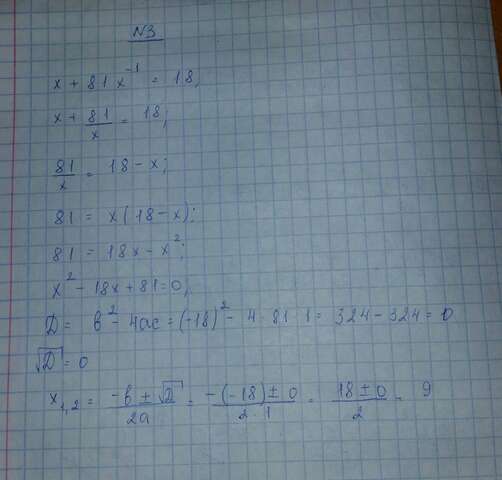 N3
x + 81x⁻¹ = 18;
x + 81/x = 18;
81/x = 18 - x;
81 = x(18 - x);
81 = 18x - x²;
x² - 18x + 81 = 0;
D = b² - 4ac = (-18)² - 4 · 81 · 1 = 324 - 324 = 0
√D = 0
x₁,₂ = (-b ± √D)/2a = (-(-18) ± 0)/(2 · 1) = (18 ± 0)/2 = 9